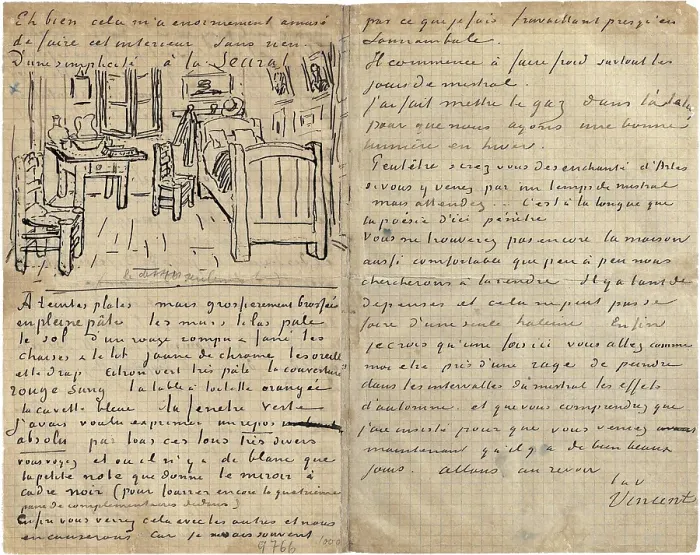 Eh bien cela m'a enormement amusé
de faire cet interieur Sans rien.
D'une simplicité à la Seurat
A teintes plates mais grossierement brossée
en pleine pâte les murs lilas pale
le sol d'un rouge rompu & fané les
chaises & le lit jaune de chrome les oreillers
et le drap citron vert très pâle la couverture
rouge sang la table à toilette orangée
la cuvette bleue la fenetre verte
J'avais voulu exprimer un repos
absolu par tous ces tons très divers
vous voyez et où il n'y a de blanc que
la petite note que donne le miroir à
cadre noir (pour fourrer encore la quatrième
paire de complementaires dedans)
Enfin vous verrez cela avec les autres et nous
en causerons Car je ne sais souvent
9766
par ce que je fais travaillant presqu'en
somnambule.
Il commence à faire froid surtout les
jours de mistral.
j'ai fait mettre le gaz dans
pour que nous ayons une bonne
lumière en hiver.
Peutêtre serez vous desenchanté d'Arles
si vous y venez par un temps de mistral
mais attendez... C'est à la longue que
la poésie d'ici pénètre
Vous ne trouverez pas encore la maison
aussi comfortable que peu à peu nous
chercherons à la rendre Il y a tant de
depenses et cela ne peut pas se
faire d'une seule haleine Enfin
je crois qu'une fois ici vous allez comme
moi etre pris d'une rage de peindre
dans les intervalles du mistral les effets
d'automne. et que vous comprendrez que
j'aie insisté pour que vous veniez
maintenant qu'il y a de bien beaux
jours. allons au revoir
t. à v.
Vincent